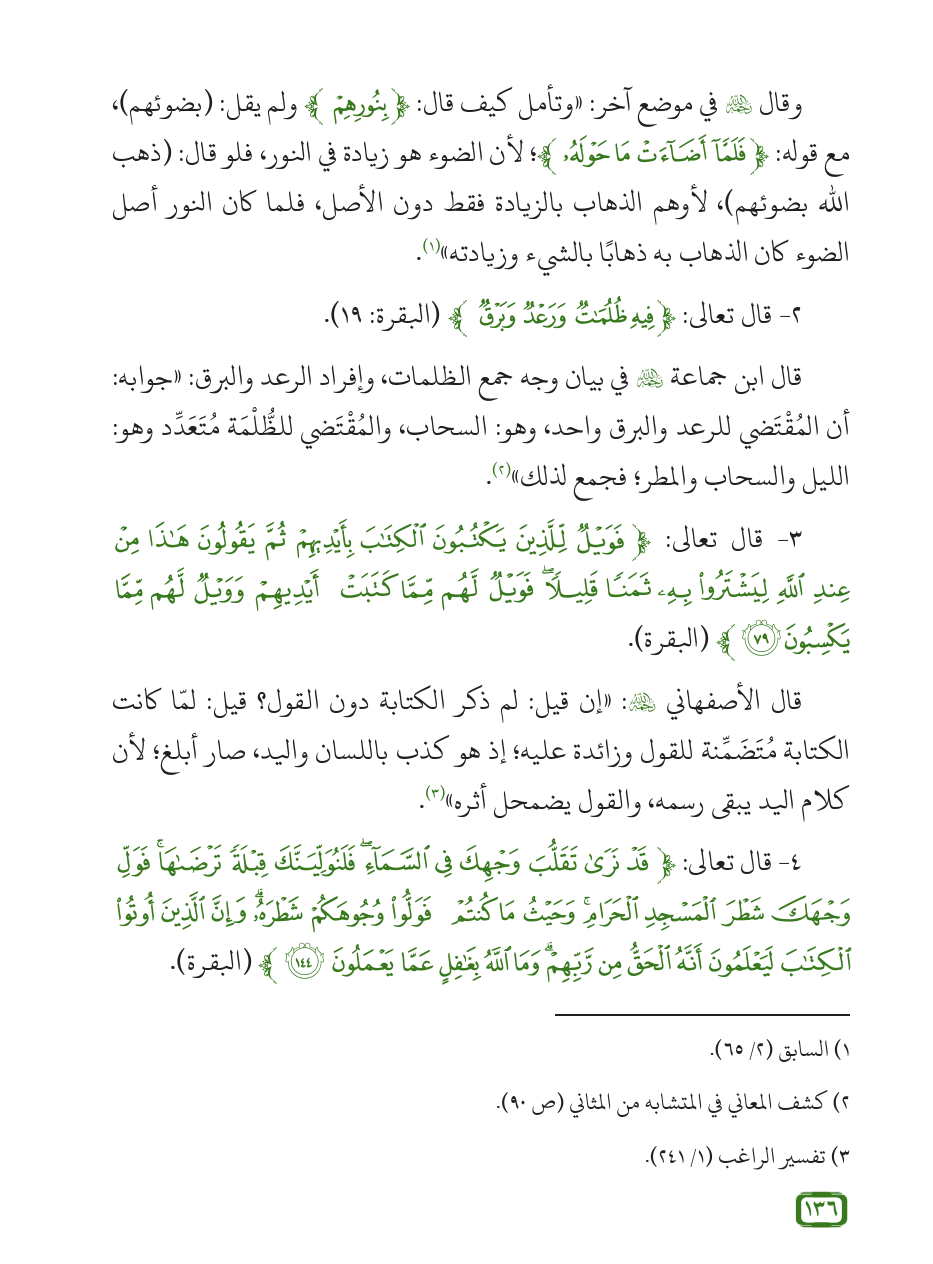 وقال ﵀ في موضع آخر: «وتأمل كيف قال: ﴿بِنُورِهِمْ﴾ ولم يقل: (بضوئهم)،
مع قوله: ﴿فَلَمَّآ أَضَآءَتْ مَا حَوْلَهُۥ﴾؛ لأن الضوء هو زيادة في النور، فلو قال: (ذهب
الله بضوئهم)، لأوهم الذهاب بالزيادة فقط دون الأصل، فلما كان النور أصل
الضوء كان الذهاب به ذهابًا بالشيء وزيادته»(١).
٢- قال تعالى: ﴿فِيهِ ظُلُمَٰتٌ وَرَعْدٌ وَبَرْقٌ﴾ (البقرة: ١٩).
قال ابن جماعة ﵀ في بيان وجه جمع الظلمات، وإفراد الرعد والبرق: «جوابه:
أن المُقْتَضي للرعد والبرق واحد، وهو: السحاب، والمُقْتَضي للظُّلْمَة مُتَعَدِّد وهو:
الليل والسحاب والمطر؛ فجمع لذلك»(٢).
٣- قال تعالى: ﴿فَوَيْلٌ لِّلَّذِينَ يَكْتُبُونَ ٱلْكِتَٰبَ بِأَيْدِيهِمْ ثُمَّ يَقُولُونَ هَٰذَا مِنْ
عِندِ ٱللَّهِ لِيَشْتَرُوا۟ بِهِۦ ثَمَنًا قَلِيلًا ۖ فَوَيْلٌ لَّهُم مِّمَّا كَتَبَتْ أَيْدِيهِمْ وَوَيْلٌ لَّهُم مِّمَّا
يَكْسِبُونَ ٧٩﴾ (البقرة).
قال الأصفهاني ﵀: «إن قيل: لم ذكر الكتابة دون القول؟ قيل: لمّا كانت
الكتابة مُتَضَمِّنة للقول وزائدة عليه؛ إذ هو كذب باللسان واليد، صار أبلغ؛ لأن
كلام اليد يبقى رسمه، والقول يضمحل أثره»(٣).
٤- قال تعالى: ﴿قَدْ نَرَىٰ تَقَلُّبَ وَجْهِكَ فِى ٱلسَّمَآءِ ۖ فَلَنُوَلِّيَنَّكَ قِبْلَةً تَرْضَىٰهَا ۚ فَوَلِّ
وَجْهَكَ شَطْرَ ٱلْمَسْجِدِ ٱلْحَرَامِ ۚ وَحَيْثُ مَا كُنتُمْ فَوَلُّوا۟ وُجُوهَكُمْ شَطْرَهُۥ ۗ وَإِنَّ ٱلَّذِينَ أُوتُوا۟
ٱلْكِتَٰبَ لَيَعْلَمُونَ أَنَّهُ ٱلْحَقُّ مِن رَّبِّهِمْ ۗ وَمَا ٱللَّهُ بِغَٰفِلٍ عَمَّا يَعْمَلُونَ ١٤٤﴾ (البقرة).
١) السابق (٢/ ٦٥).
٢) كشف المعاني في المتشابه من المثاني (ص ٩٠).
٣) تفسير الراغب (١/ ٢٤١).
١٣٦